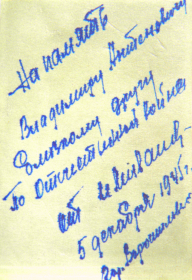 На память
Владимиру Антоновичу
близкому другу
По Отечественный войне
от
5 декабря 1945 г.
гор.